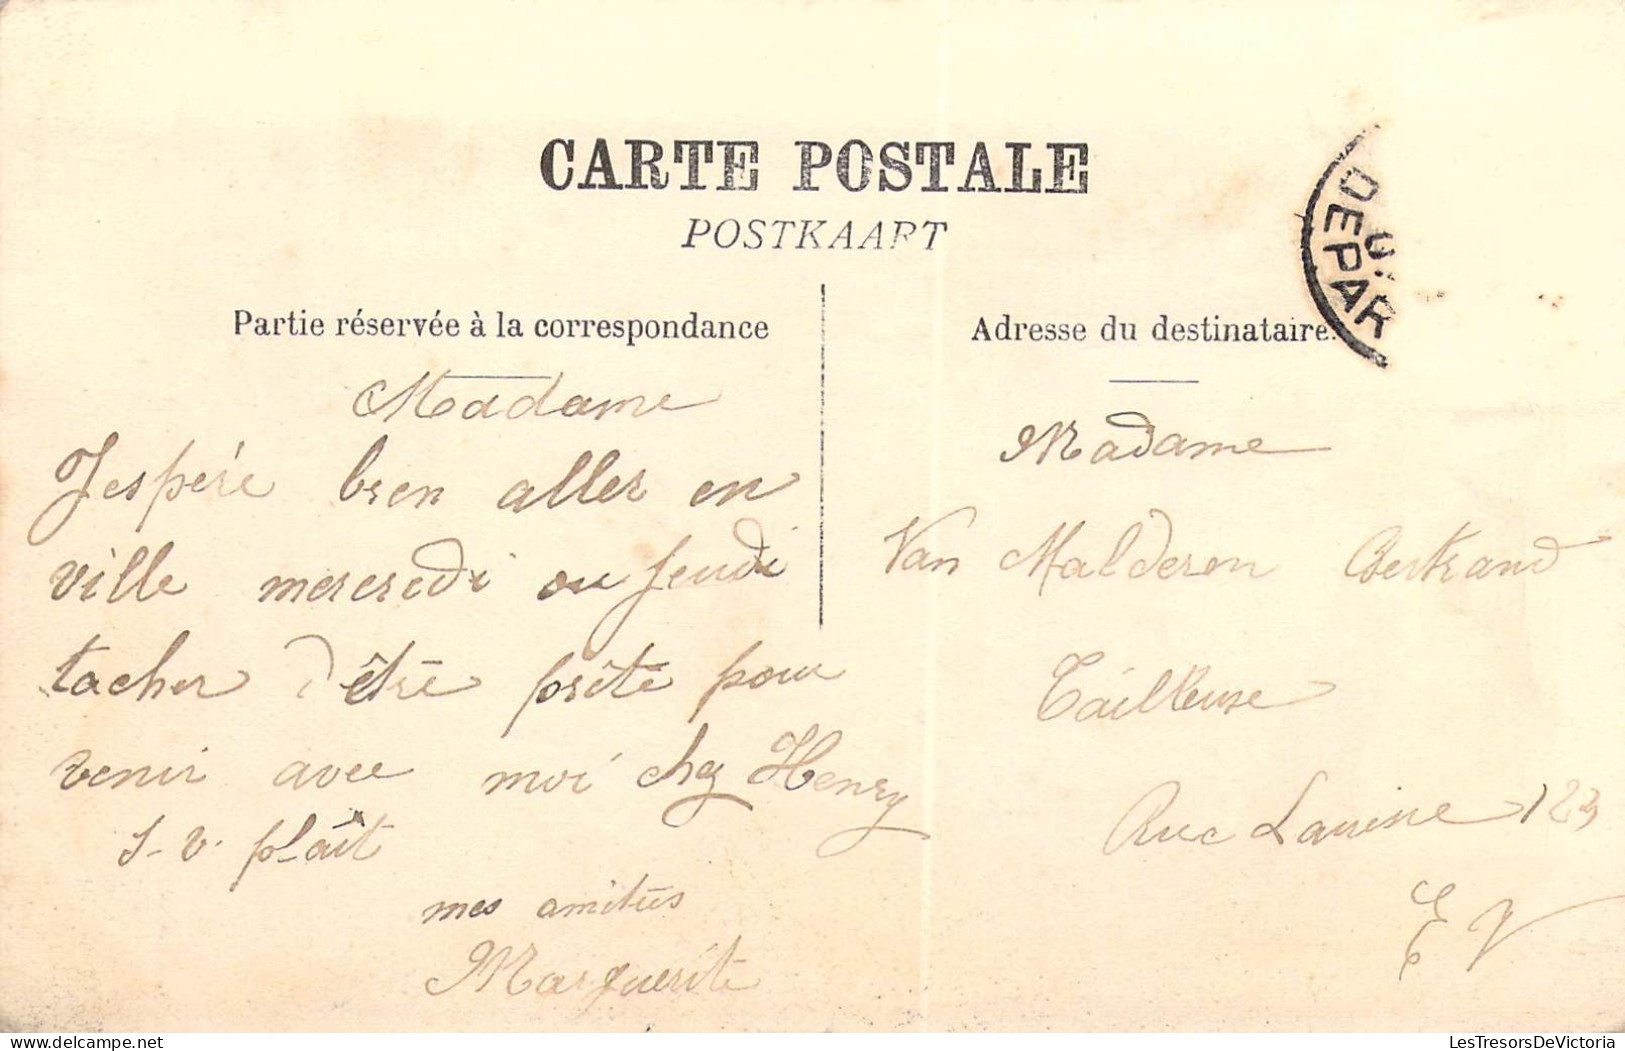 CARTE POSTALE
POSTKAART
DEPAR
Partie réservée à la correspondance
Madame
J'espére bien aller en
ville mercredi ou jeudi
tacher d'être prête pour
venir avec moi chez Henry
S. v. plait
mes amitiés
Marguerite
Adresse du destinataire.
Madame
Van Malderen Bertrand
Tailleuse
Rue Louise 123
E V
LesTresorsDeVictoria